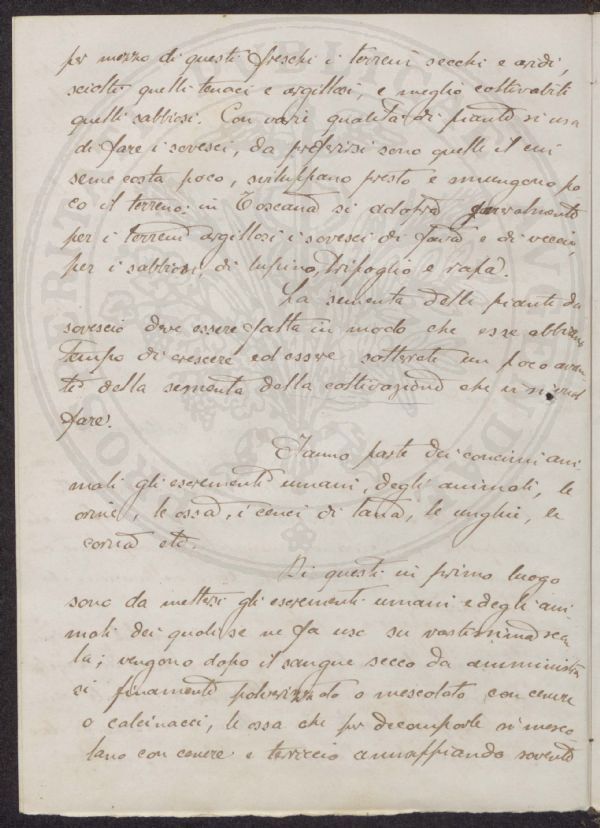 per mezzo di questi freschi i terreni secchi e aridi,
sciolti quelli tenaci e argillosi, e meglio coltivabili
quelli sabbiosi. Con varie qualità di piante si usa
di fare i sovesci, da preferirsi sono quelle il cui
seme costa poco, sviluppano presto e smungono po
co il terreno: in Toscana si adotta generalmente
per i terreni argillosi i sovesci di fava e di veccia,
per i sabbiosi, di lupino, trifoglio e rapa.
La sementa delle piante da
sovescio deve essere fatta in modo che esse abbiano
tempo di crescere ed essere sotterate un poco avan
ti della sementa della coltivazione che vi si vuol
fare.
Fanno parte dei concimi ani
mali gli escrementi umani, degli animali, le
orine, le ossa, i cenci di lana, le unghie, le
corna etc.
Di questi in primo luogo
sono da mettersi gli escrementi umani e degli ani
mali dei quali se ne fa uso su vastissima sca
la; vengono dopo il sangue secco da amministrar
si finamente polverizzato o mescolato con cenere
o calcinacci, le ossa che per decomporle si mesco
lano con cenere e terriccio annaffiando sovente